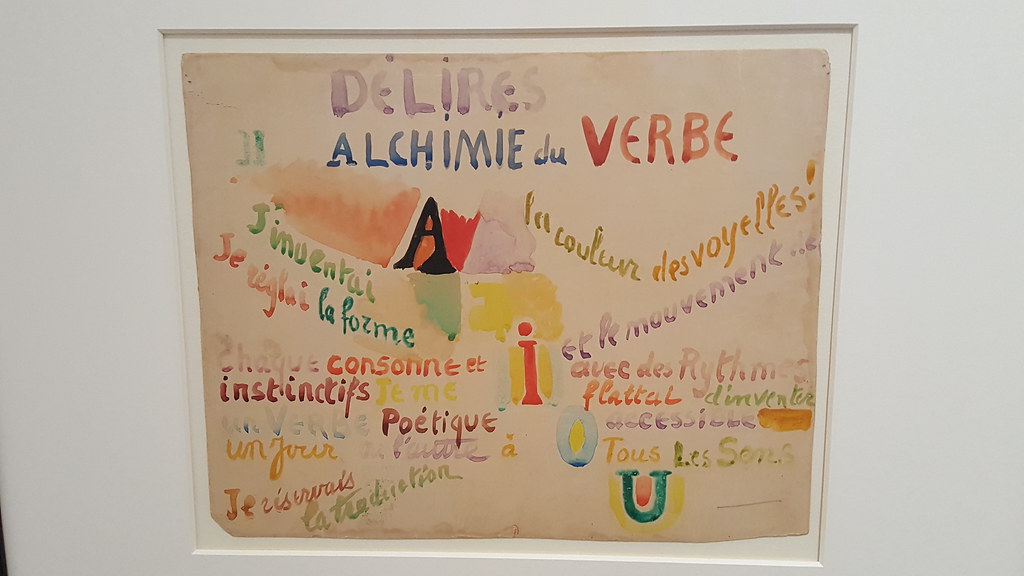 DÉLIRES
II
ALCHIMIE du VERBE
J'inventai A la couleur des voyelles!
Je réglai la forme et le mouvement de
Chaque consonne et i avec des Rythmes
instinctifs Je me flattai d'inventer
un VERBE Poétique O accessible
un jour ou l'autre à Tous Les Sens
U
Je réservais la traduction